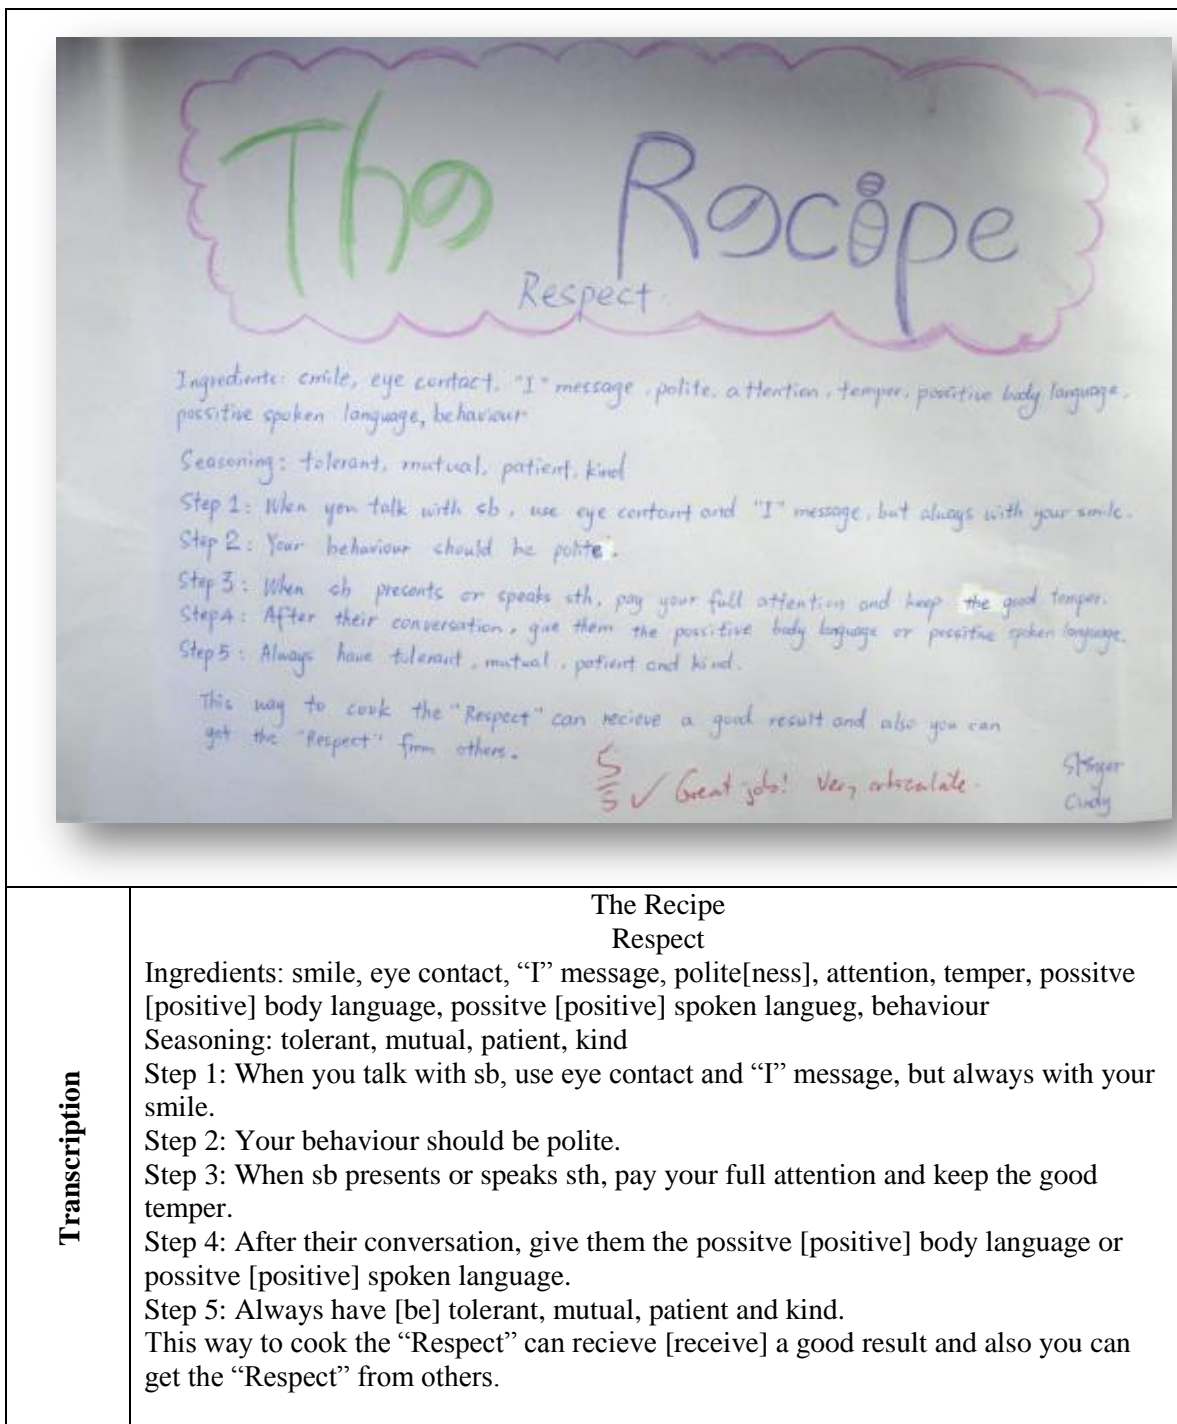 The Recipe
Respect
Ingredients: smile, eye contact, "I" message, polite, attention, temper, possitive body language,
possitive spoken language, behaviour
Seasoning: tolerant, mutual, patient, kind
Step 1: When you talk with sb, use eye contant and "I" message, but always with your smile.
Step 2: Your behaviour should be polite.
Step 3: When sb presents or speaks sth, pay your full attention and keep the good temper.
Step 4: After their conversation, give them the possitive body language or possitive spoken language.
Step 5: Always have tolerant, mutual, patient and kind.
This way to cook the "Respect" can recieve a good result and also you can
get the "Respect" from others.
5/5 ✓ Great job! Very articulate.
Cindy
Transcription
The Recipe
Respect
Ingredients: smile, eye contact, “I” message, polite[ness], attention, temper, possitve
[positive] body language, possitve [positive] spoken langueg, behaviour
Seasoning: tolerant, mutual, patient, kind
Step 1: When you talk with sb, use eye contact and “I” message, but always with your
smile.
Step 2: Your behaviour should be polite.
Step 3: When sb presents or speaks sth, pay your full attention and keep the good
temper.
Step 4: After their conversation, give them the possitve [positive] body language or
possitve [positive] spoken language.
Step 5: Always have [be] tolerant, mutual, patient and kind.
This way to cook the “Respect” can recieve [receive] a good result and also you can
get the “Respect” from others.